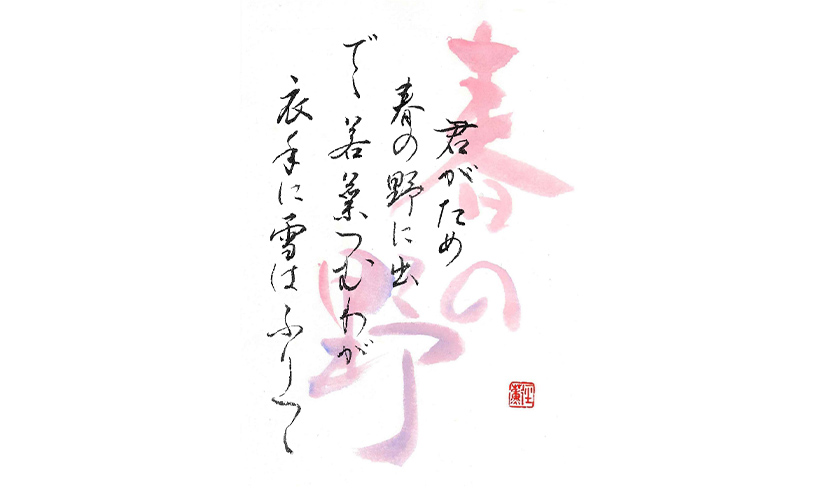 春の
野
君がため
春の野に出
でゝ若菜つむわが
衣手に雪はふりつゝ